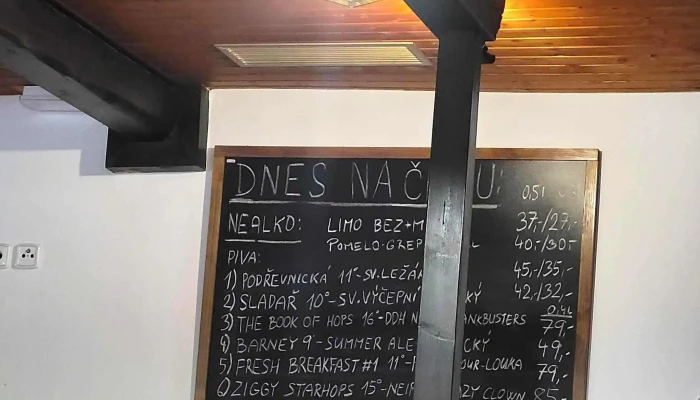 DNES NA Č U: 0,5l
NEALKO: LIMO BEZ+M 37,-/27,-
POMELO-GREP 40,-/30,-
PIVA:
1) PODŘEVNICKÁ 11°-SV.LEŽÁ 45,-/35,-
2) SLADAŘ 10°-SV.VÝČEPNÍ KÝ 42,-/32,-
0,4l
3) THE BOOK OF HOPS 16°-DDH N ANKBUSTERS 79,-
4) BARNEY 9°-SUMMER ALE CKÝ 49,-
5) FRESH BREAKFAST #1 11°- OUR-LOUKA 79,-
6) ZIGGY STARHOPS 15°-NEIP ZY CLOWN 85,-